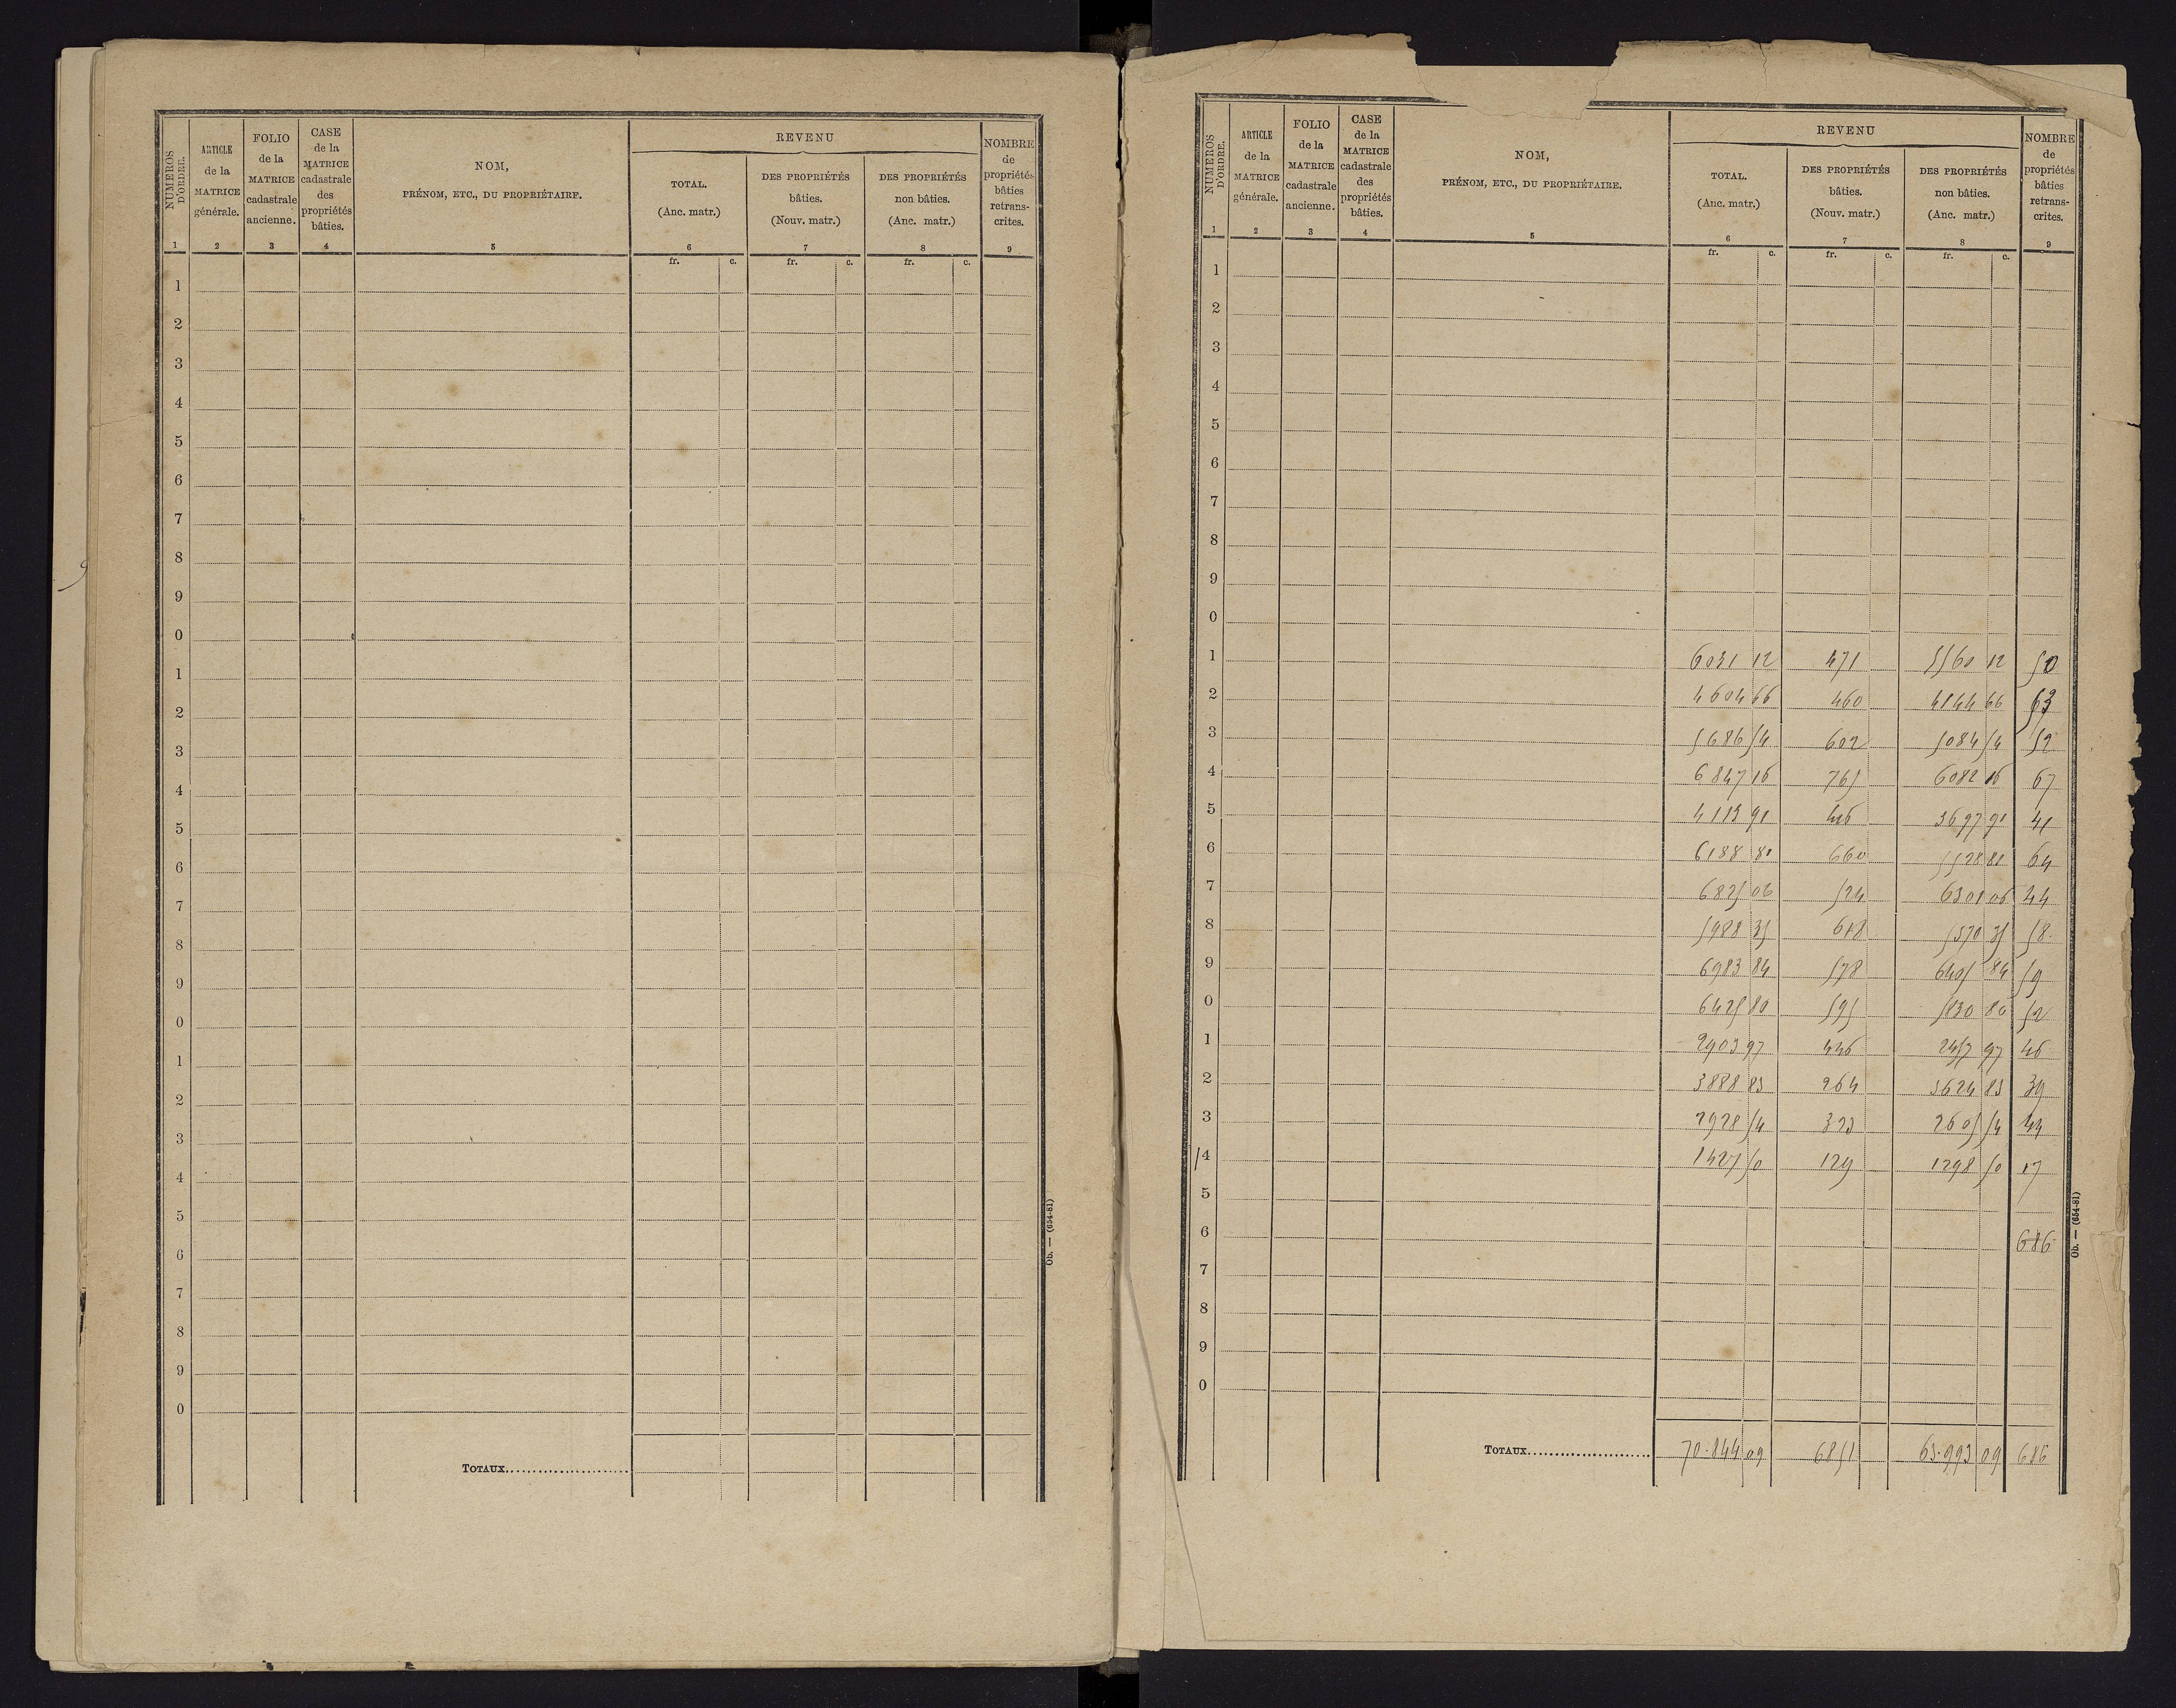 NUMÉROS D'ORDRE.
ARTICLE de la MATRICE générale.
FOLIO de la MATRICE cadastrale ancienne.
CASE de la MATRICE cadastrale des propriétés bâties.
NOM,
PRÉNOM, ETC., DU PROPRIÉTAIRE.
REVENU
TOTAL. (Anc. matr.)
DES PROPRIÉTÉS bâties. (Nouv. matr.)
DES PROPRIÉTÉS non bâties. (Anc. matr.)
NOMBRE de propriétés bâties retrans-crites.
1 2 3 4 5 6 7 8 9
fr. c. fr. c. fr. c.
1
2
3
4
5
6
7
8
9
0
1
2
3
4
5
6
7
8
9
0
1
2
3
4
5
6
7
8
9
0
TOTAUX
Ob. — (654-81)
NUMÉROS D'ORDRE.
ARTICLE de la MATRICE générale.
FOLIO de la MATRICE cadastrale ancienne.
CASE de la MATRICE cadastrale des propriétés bâties.
NOM,
PRÉNOM, ETC., DU PROPRIÉTAIRE.
REVENU
TOTAL. (Anc. matr.)
DES PROPRIÉTÉS bâties. (Nouv. matr.)
DES PROPRIÉTÉS non bâties. (Anc. matr.)
NOMBRE de propriétés bâties retrans-crites.
1 2 3 4 5 6 7 8 9
fr. c. fr. c. fr. c.
1
2
3
4
5
6
7
8
9
0
1 6031 12 471 5560 12 50
2 4604 66 460 4144 66 53
3 5686 54 602 5084 54 52
4 6847 16 765 6082 16 67
5 4113 91 416 3697 91 41
6 6188 81 660 5528 81 64
7 6825 06 524 6301 06 44
8 5988 35 618 5370 35 58
9 6983 84 578 6405 84 59
0 6425 80 595 5830 80 52
1 2903 97 446 2457 97 46
2 3888 83 264 3624 83 39
3 2928 54 323 2605 54 44
4 1427 50 129 1298 50 17
5
6 686
7
8
9
0
TOTAUX 70.844 09 6851 63.993 09 686
Ob. — (654-81)